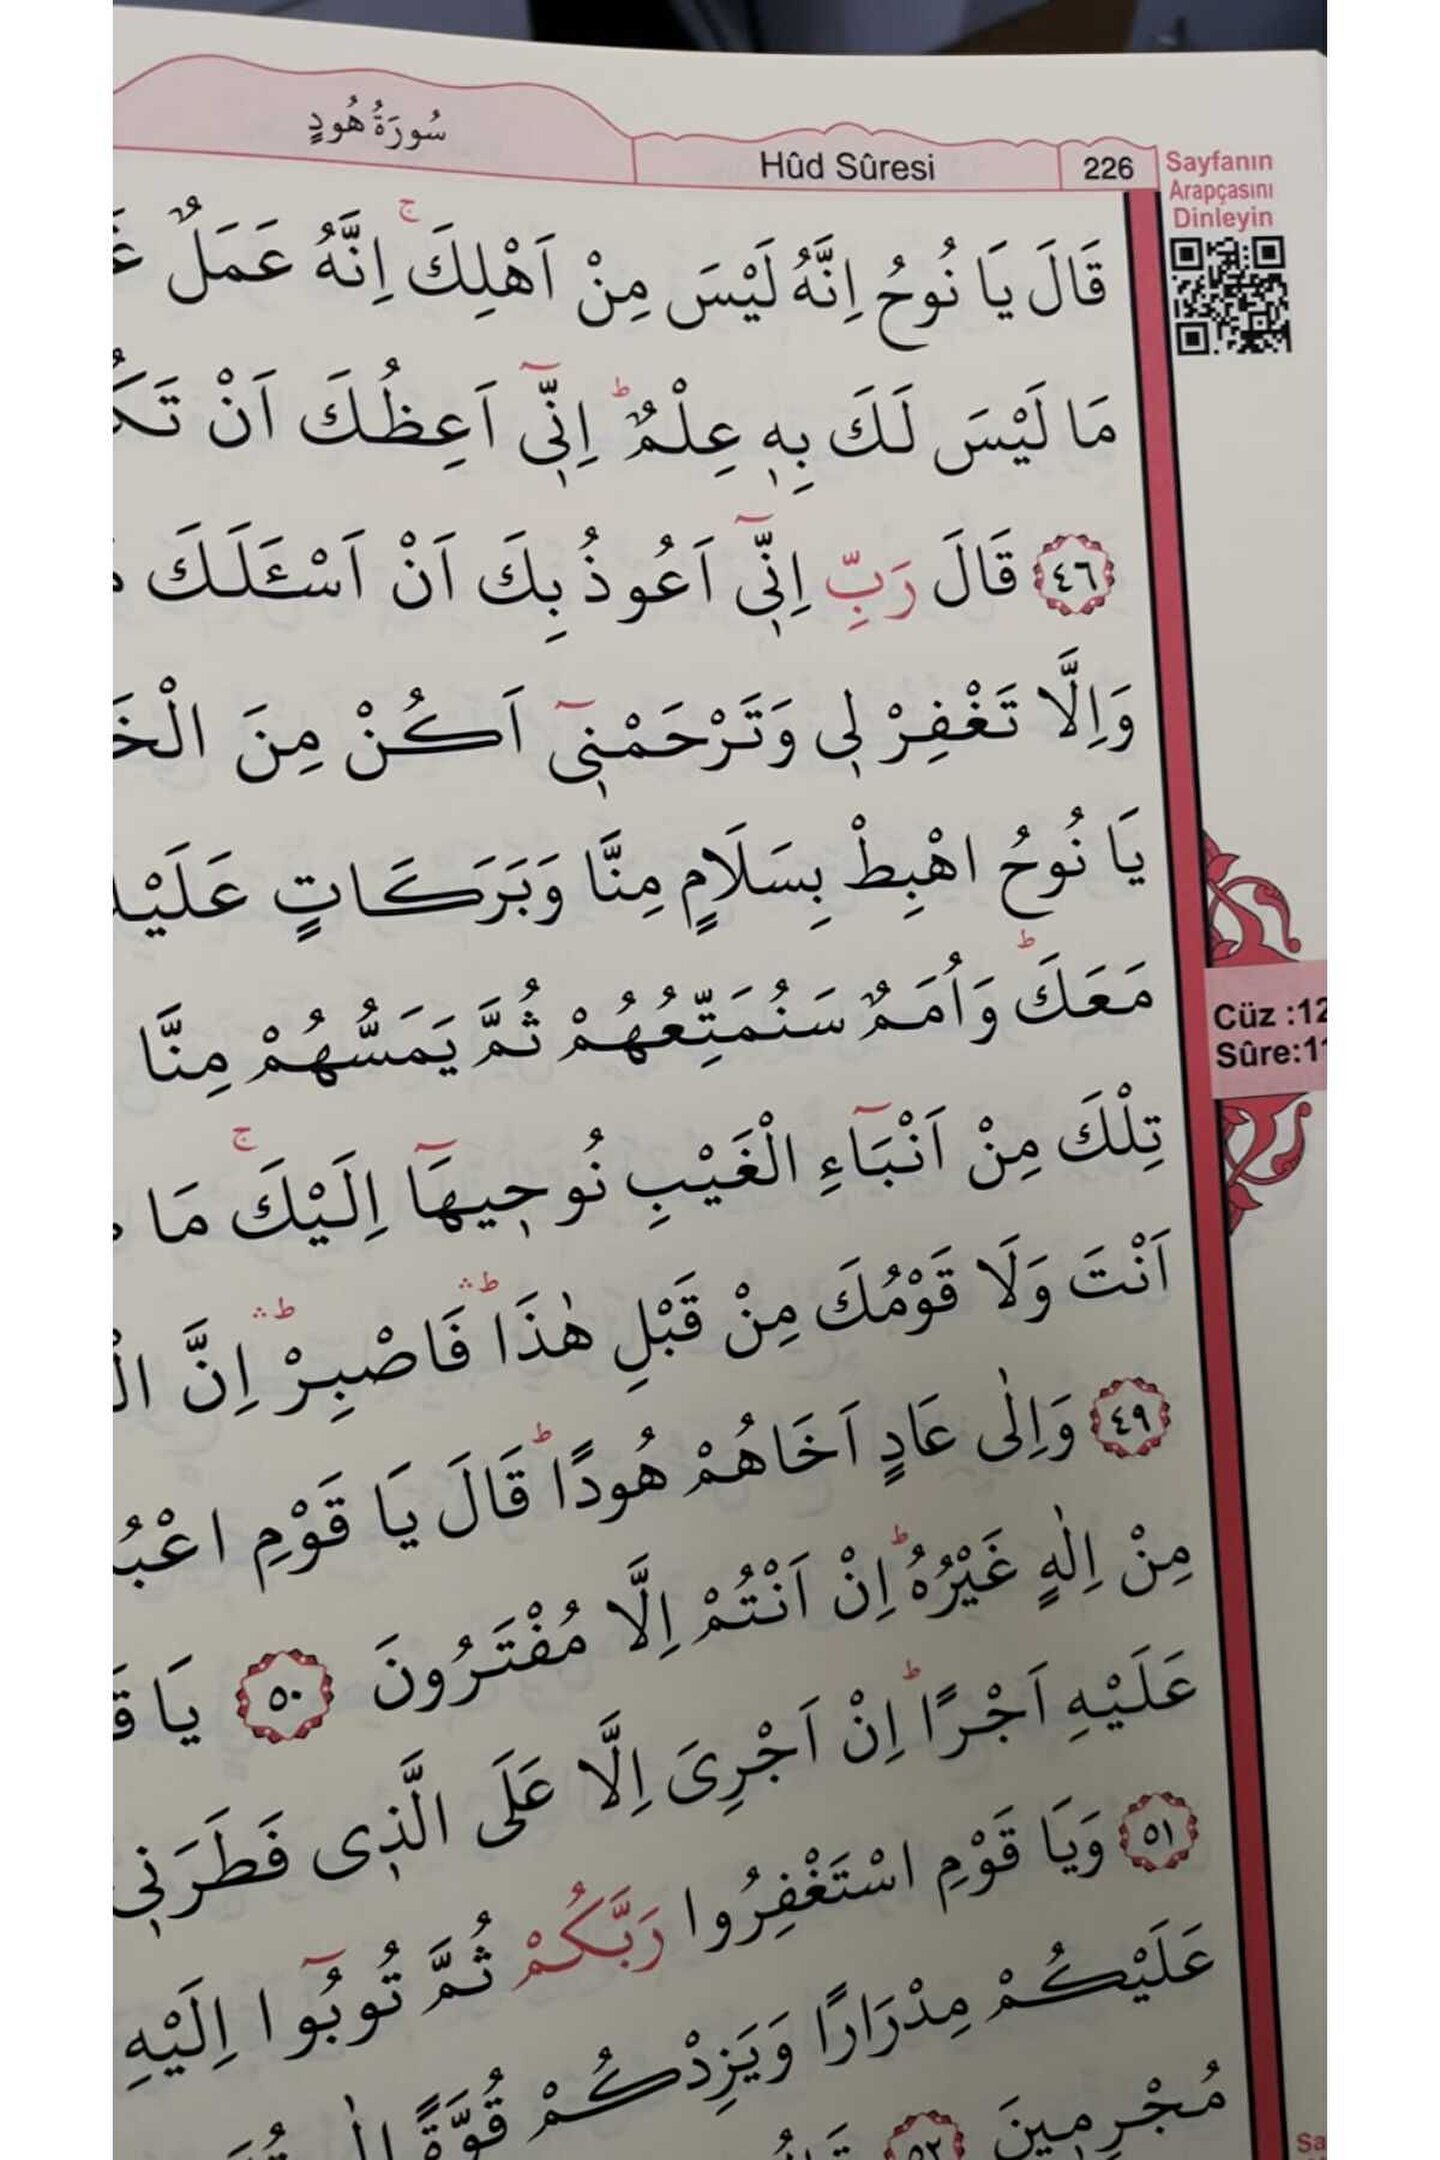 سُورَةُ هُودٍ
Hûd Sûresi
226
Sayfanın
Arapçasını
Dinleyin
قَالَ يَا نُوحُ اِنَّهُ لَيْسَ مِنْ اَهْلِكَ ۚ اِنَّهُ عَمَلٌ
مَا لَيْسَ لَكَ بِه۪ عِلْمٌ ۜ اِنّ۪ٓي اَعِظُكَ اَنْ
﴿٤٦﴾ قَالَ رَبِّ اِنّ۪ٓي اَعُوذُ بِكَ اَنْ اَسْـَٔلَكَ
وَاِلَّا تَغْفِرْ ل۪ي وَتَرْحَمْن۪ٓي اَكُنْ مِنَ
يَا نُوحُ اهْبِطْ بِسَلَامٍ مِنَّا وَبَرَكَاتٍ
مَعَكَ ؕ وَاُمَمٌ سَنُمَتِّعُهُمْ ثُمَّ يَمَسُّهُمْ مِنَّا
تِلْكَ مِنْ اَنْبَٓاءِ الْغَيْبِ نُوح۪يهَٓا اِلَيْكَ ۚ مَا
اَنْتَ وَلَا قَوْمُكَ مِنْ قَبْلِ هٰذَا ؕۛ فَاصْبِرْ ؕۛ اِنَّ
﴿٤٩﴾ وَاِلٰى عَادٍ اَخَاهُمْ هُودًا ؕ قَالَ يَا قَوْمِ
مِنْ اِلٰهٍ غَيْرُهُ ؕ اِنْ اَنْتُمْ اِلَّا مُفْتَرُونَ ﴿٥٠﴾ يَا
عَلَيْهِ اَجْرًا ؕ اِنْ اَجْرِيَ اِلَّا عَلَى الَّذ۪ي فَطَرَن۪ي
﴿٥١﴾ وَيَا قَوْمِ اسْتَغْفِرُوا رَبَّكُمْ ثُمَّ تُوبُٓوا اِلَيْهِ
عَلَيْكُمْ مِدْرَارًا وَيَزِدْكُمْ قُوَّةً
مُجْرِم۪ينَ ﴿٥٢﴾
Cüz :12
Sûre:11